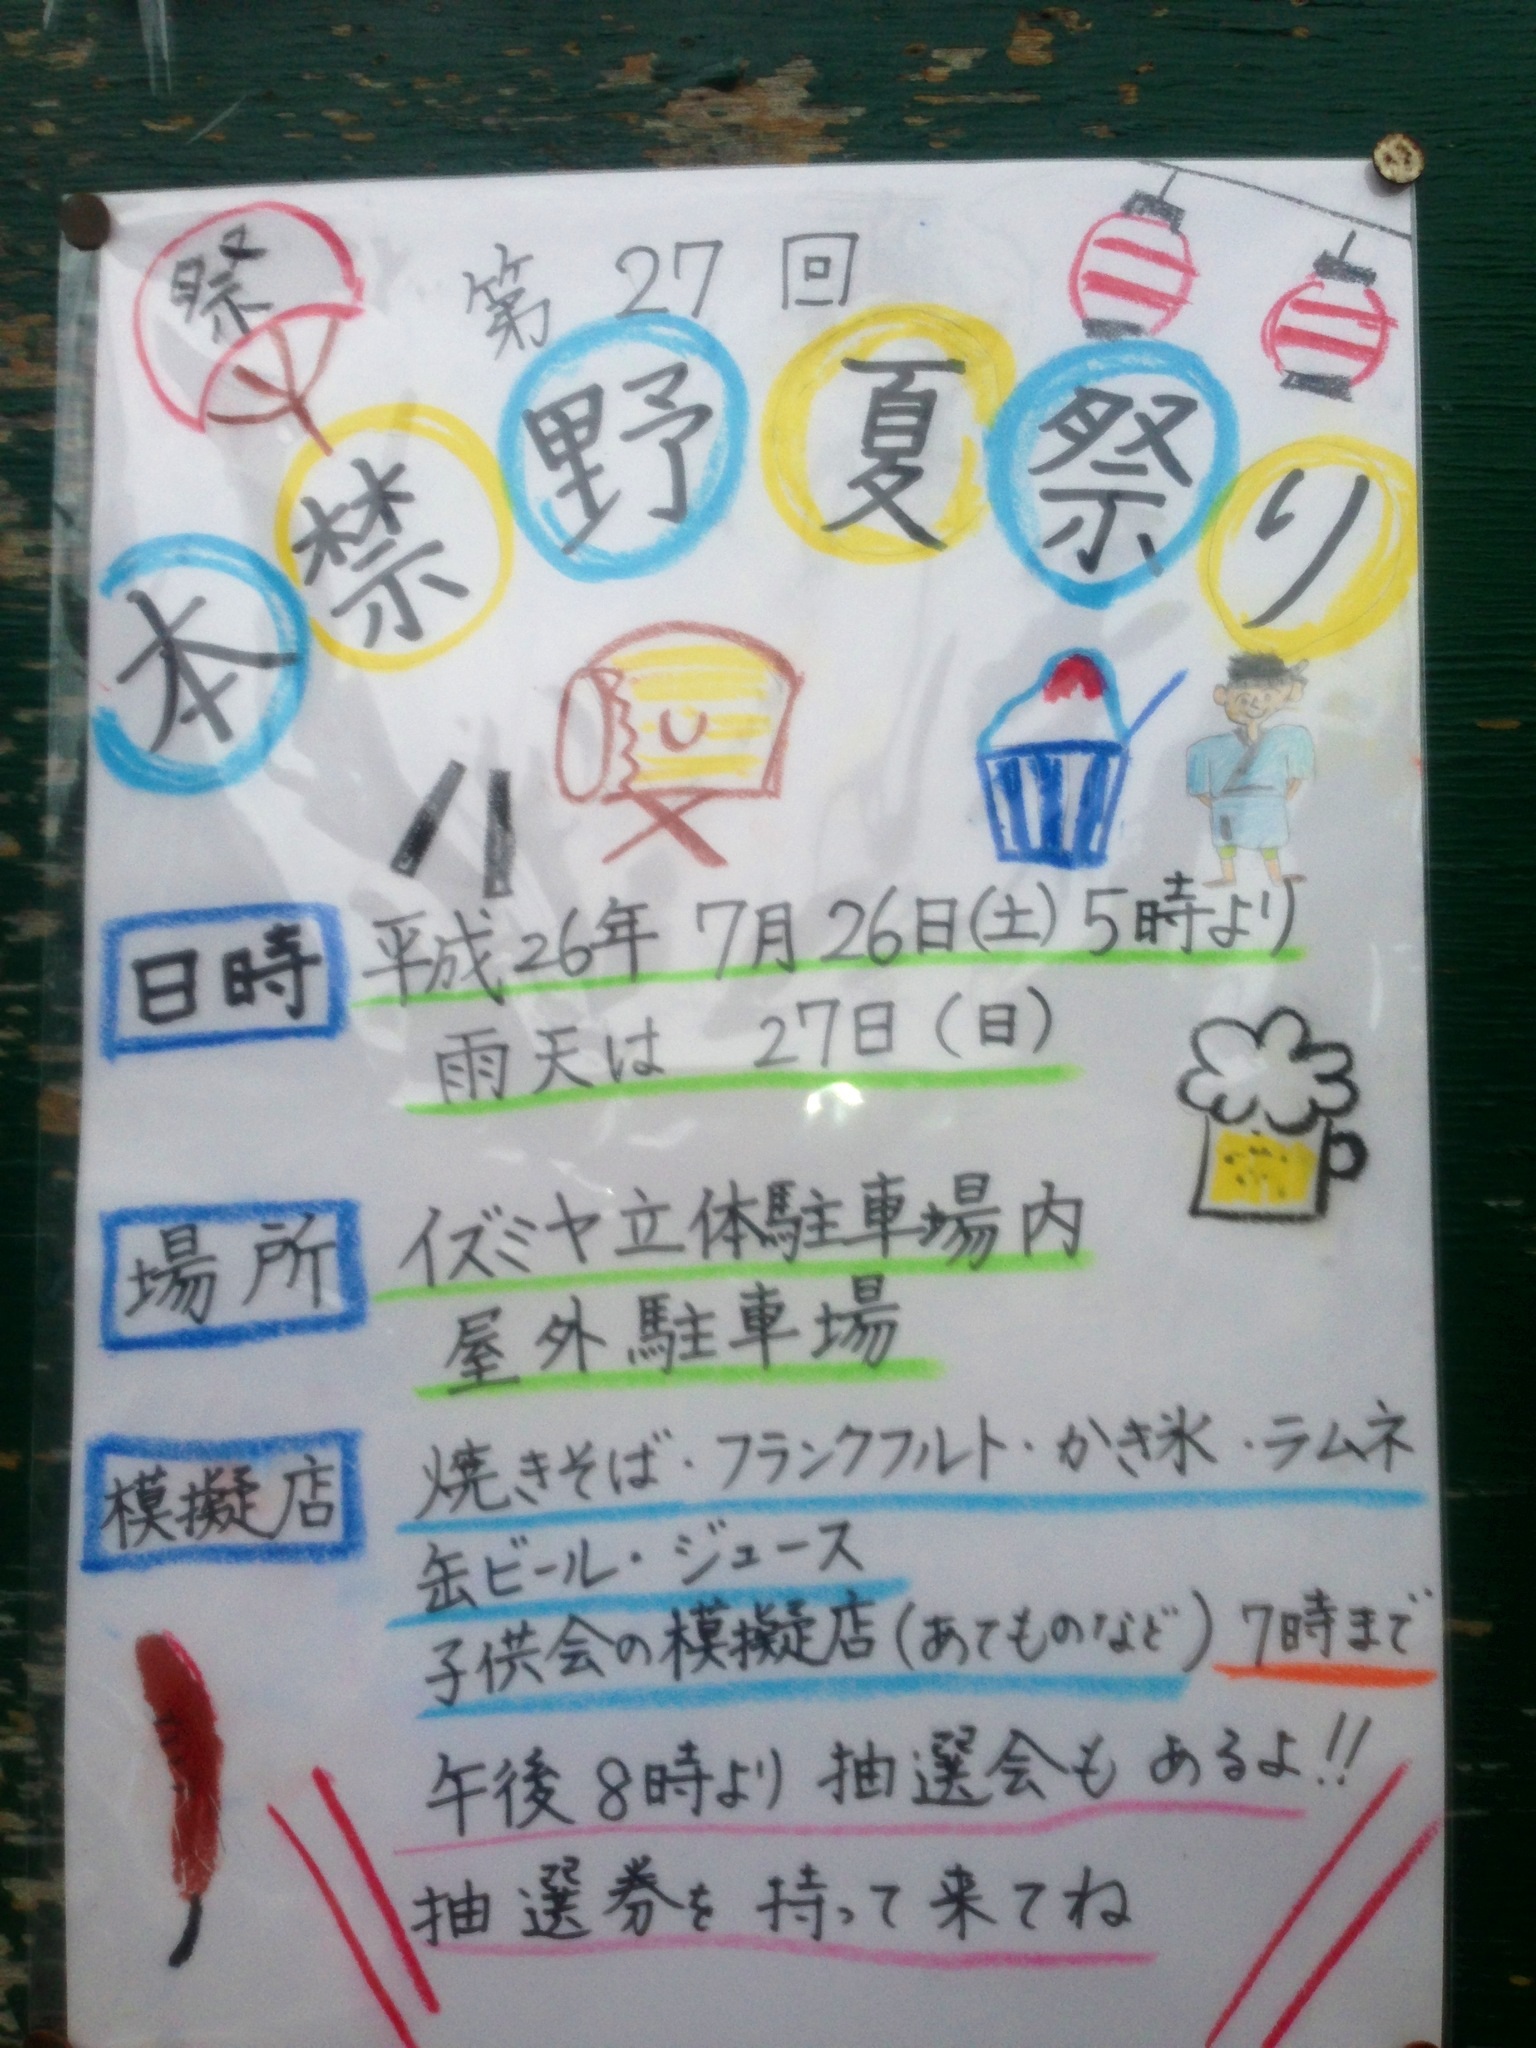 祭
第27回
本禁野夏祭り
日時 平成26年 7月26日(土) 5時より
雨天は 27日(日)
場所 イズミヤ立体駐車場内
屋外駐車場
模擬店 焼きそば・フランクフルト・かき氷・ラムネ
缶ビール・ジュース
子供会の模擬店(あてものなど) 7時まで
午後8時より 抽選会も あるよ!!
抽選券を 持って来てね